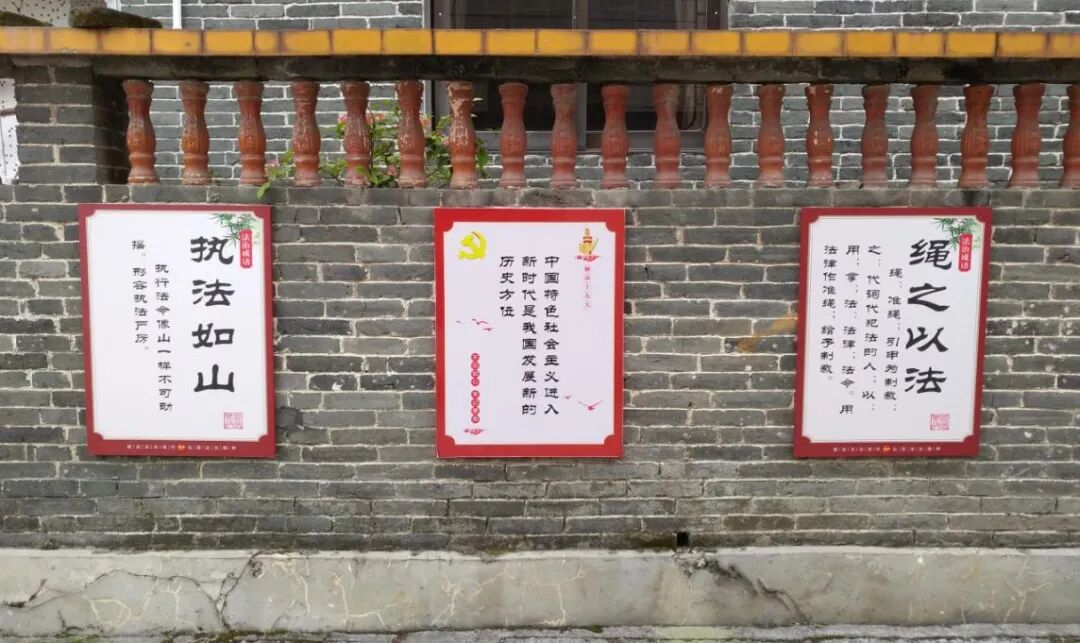 法治成语
执法如山
执行法令像山一样不可动
摇。形容执法严厉。
解读十九大
中国特色社会主义进入
新时代是我国发展新的
历史方位
不忘初心 牢记使命
法治成语
绳之以法
绳：准绳；引申为制裁；
之：代词代犯法的人；以：
用；拿；法：法律；法令。用
法律作准绳；给予制裁。